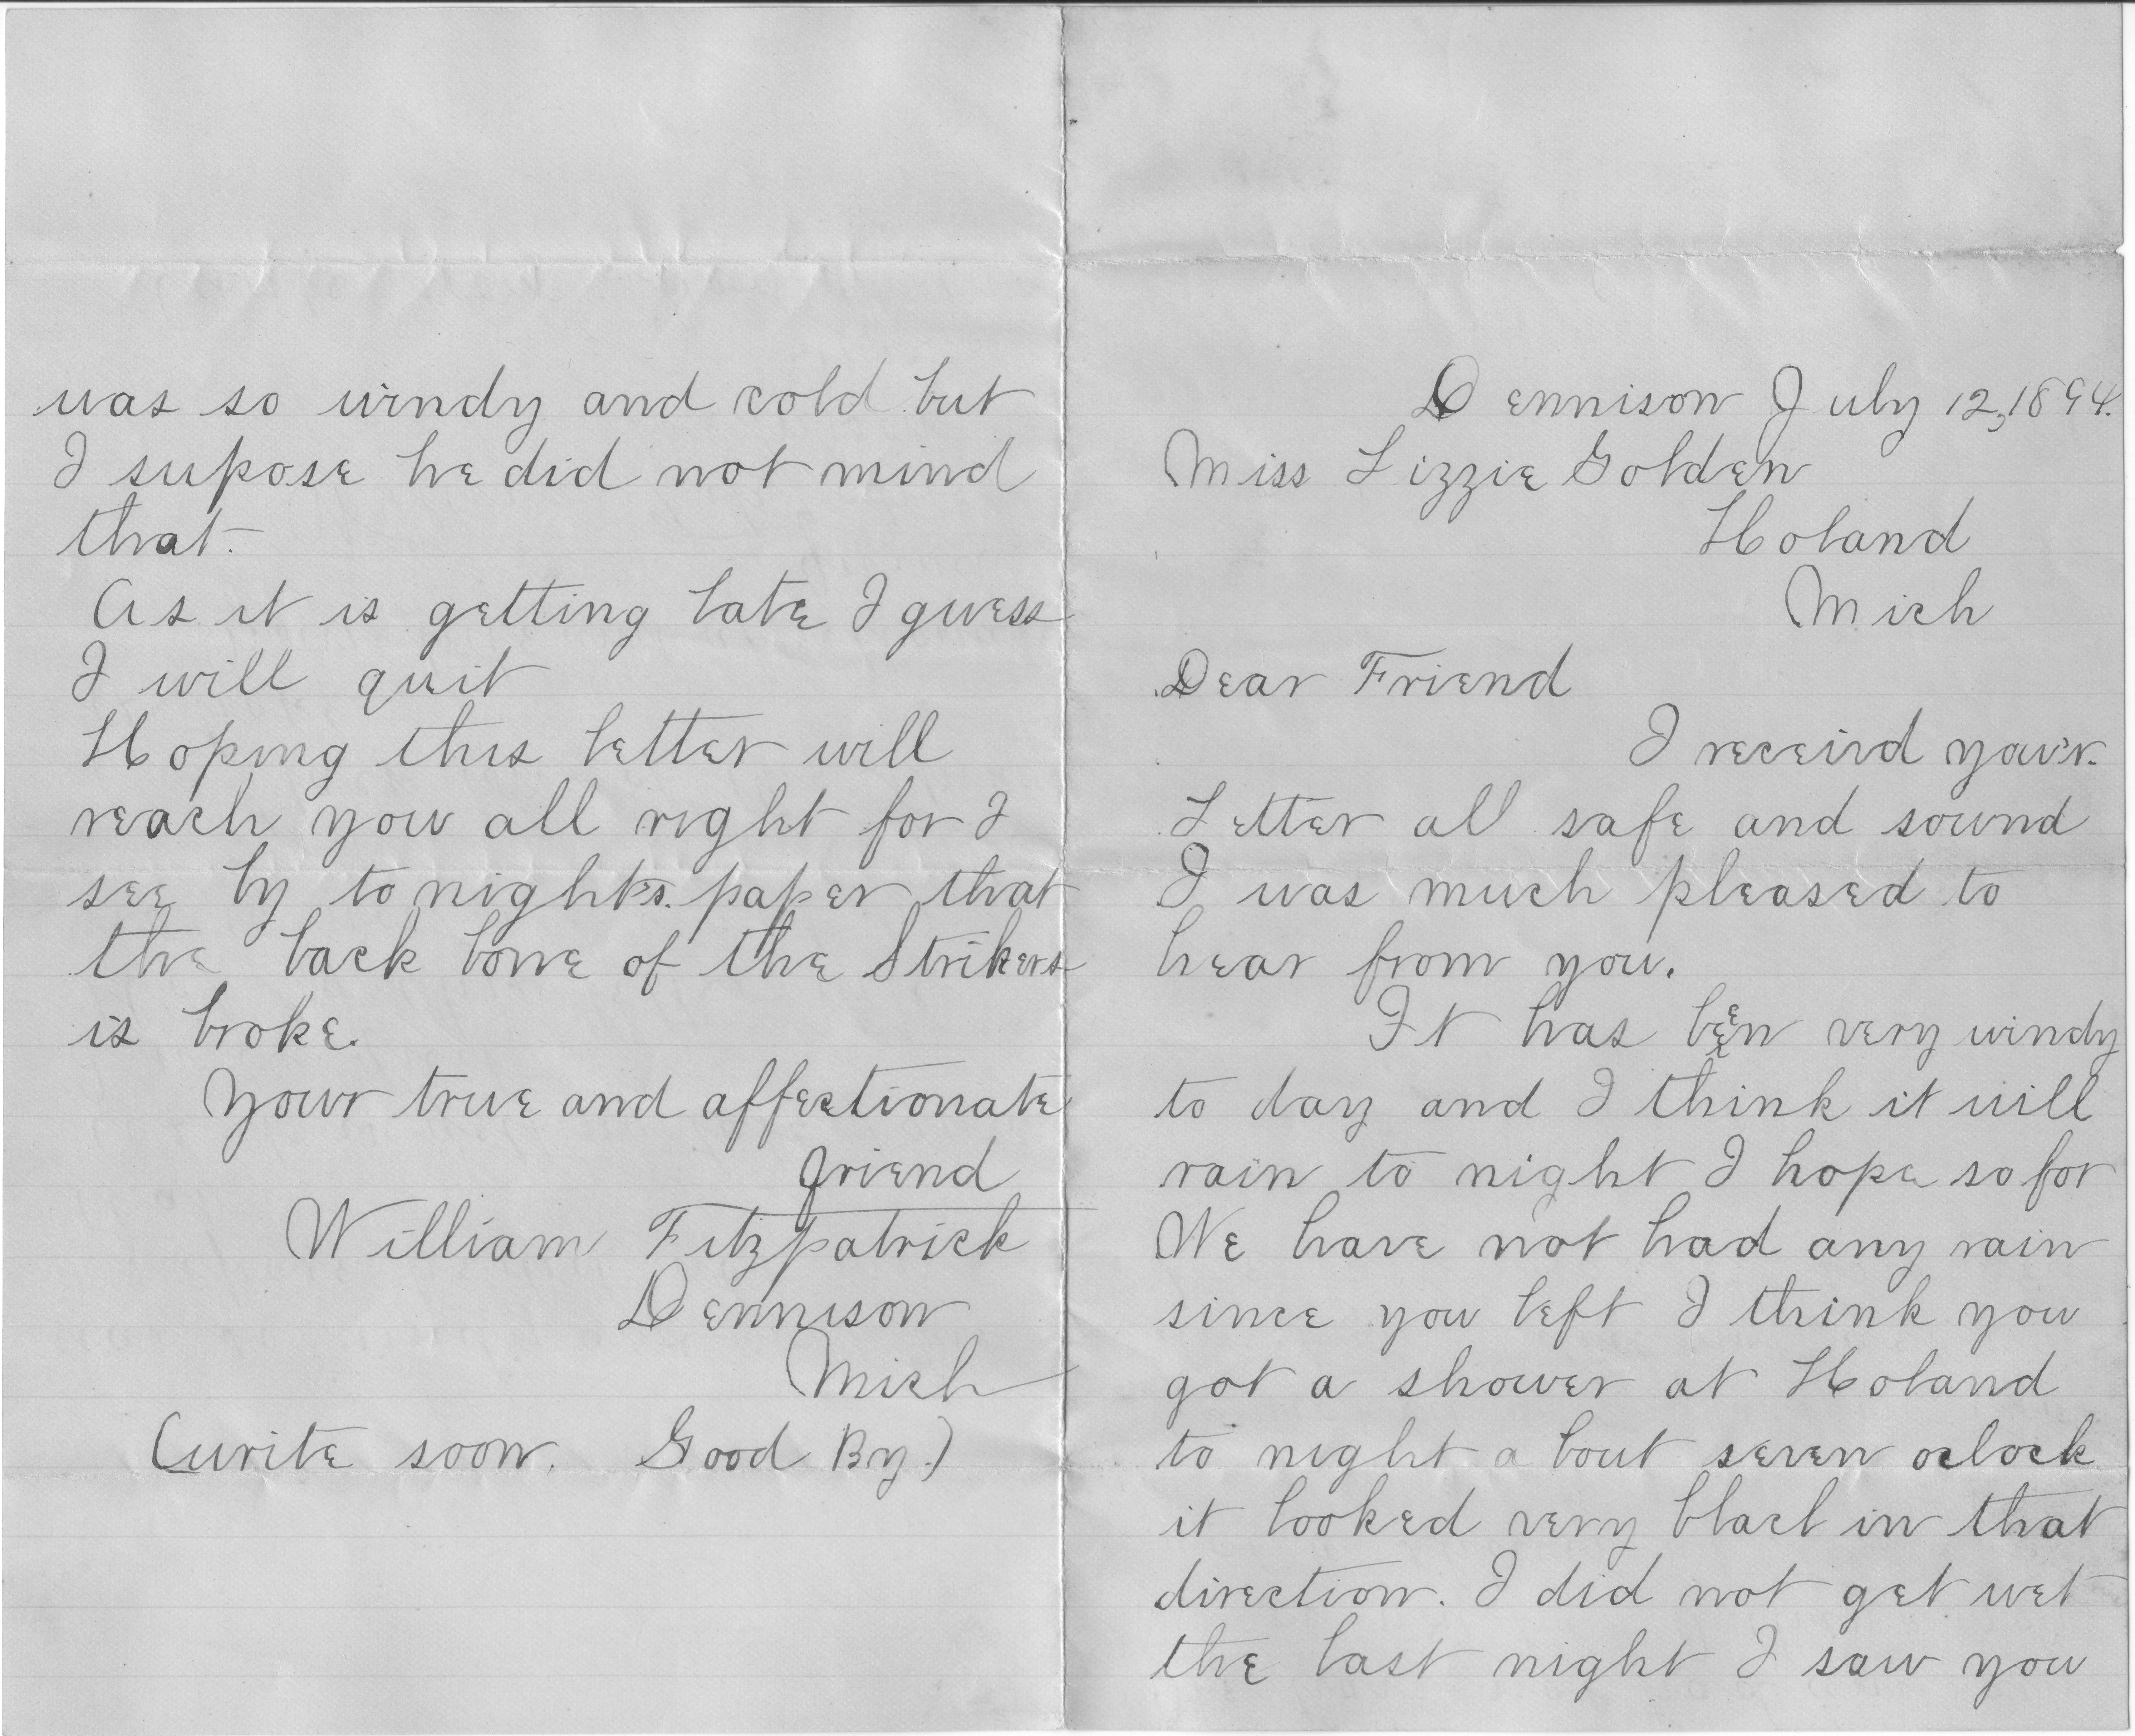 Dennison July 12, 1894.
Miss Lizzie Golden
Holand
Mich
Dear Friend
I receivd your
Letter all safe and sound
I was much pleased to
hear from you.
It has been very windy
to day and I think it will
rain to night I hope so for
We have not had any rain
since you left I think you
got a shower at Holand
to night a bout seven oclock
it looked very black in that
direction. I did not get wet
the last night I saw you
was so windy and cold but
I supose he did not mind
that.
As it is getting late I guess
I will quit
Hoping this letter will
reach you all right for I
see by to nights. paper that
the back bone of the Strikers
is broke.
Your true and affectionate
friend
William Fitzpatrick
Dennison
Mich
(write soon. Good By.)